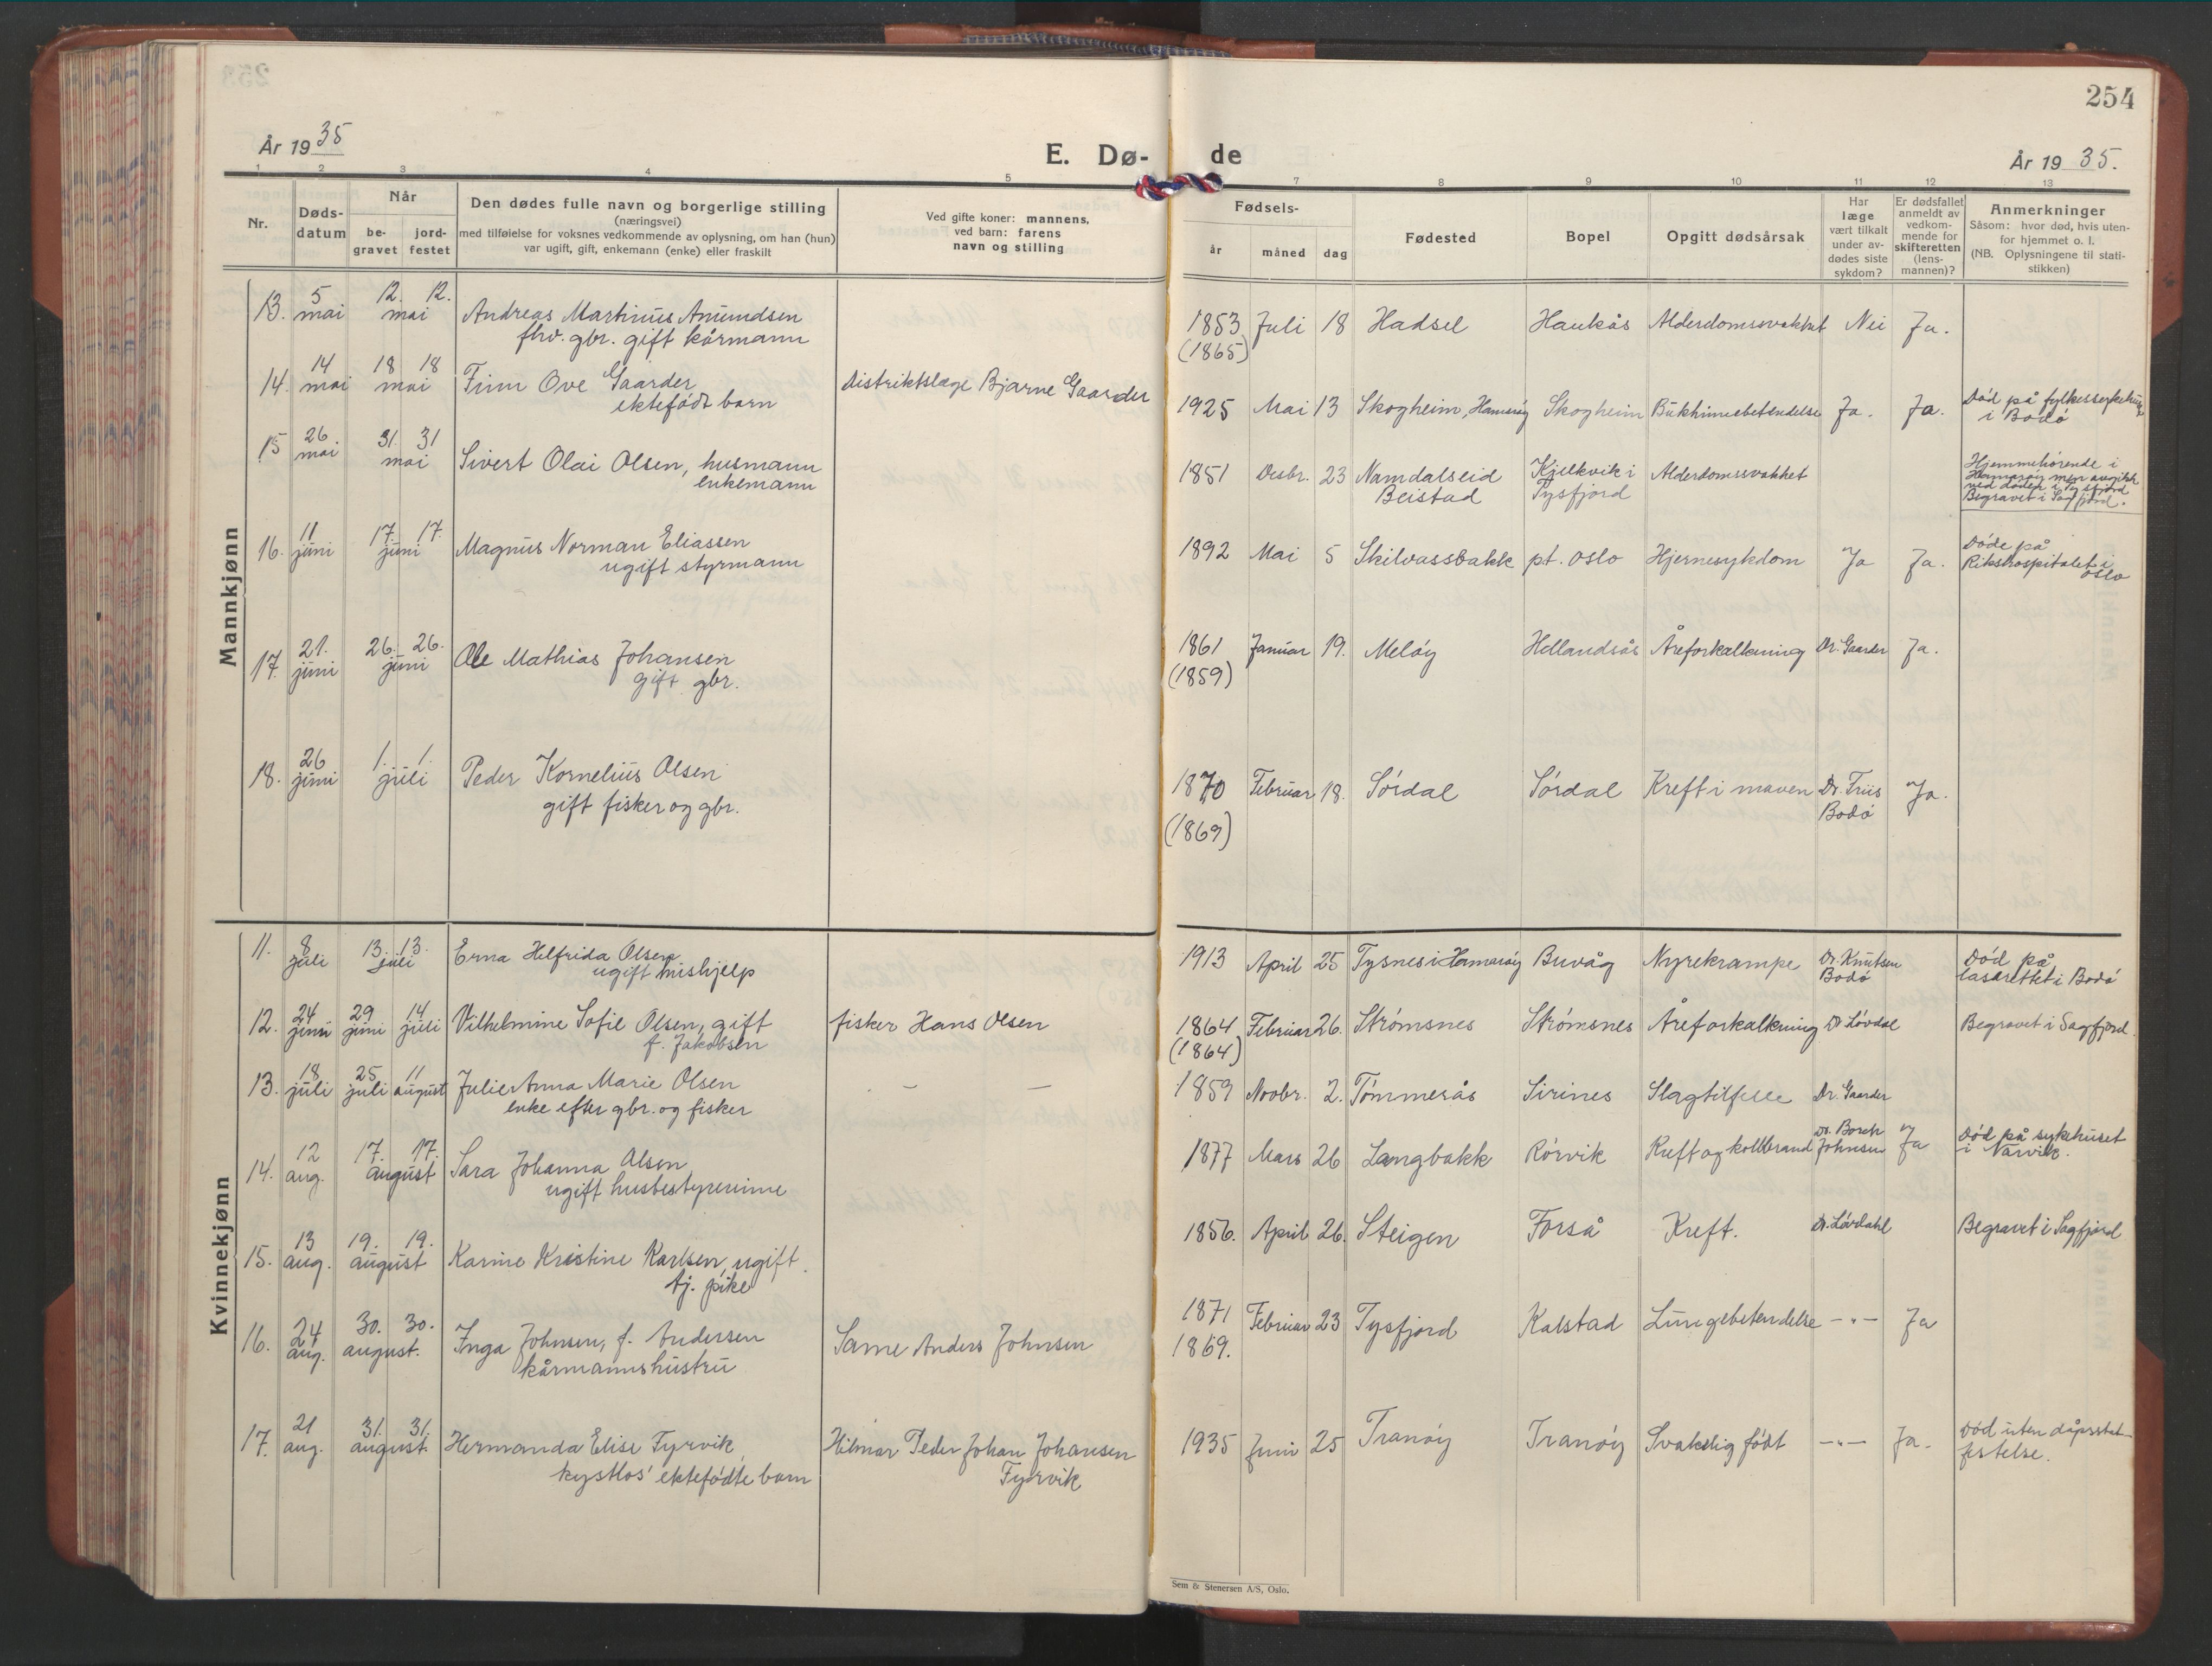 254
År 1935
E. Dø- de
År 1935.
1 2 3 4 5 7 8 9 10 11 12 13
Nr.
Døds-
datum
Når
be-
gravet
jord-
festet
Den dødes fulle navn og borgerlige stilling
(næringsvei)
med tilføielse for voksnes vedkommende av oplysning, om han (hun)
var ugift, gift, enkemann (enke) eller fraskilt
Ved gifte koner: mannens,
ved barn: farens
navn og stilling
Fødsels-
år måned dag
Fødested
Bopel
Opgitt dødsårsak
Har
læge
vært tilkalt
under av-
dødes siste
sykdom?
Er dødsfallet
anmeldt av
vedkom-
mende for
skifteretten
(lens-
mannen)?
Anmerkninger
Såsom: hvor død, hvis uten-
for hjemmet o. l.
(NB. Oplysningene til stati-
stikken)
Mannkjønn
13. 5 mai 12. 12. mai Andreas Martinus Amundsen 1853 Juli 18 Hadsel Haukås Alderdomssvakhet Nei Ja.
fhv. gbr. gift kårmann (1865)
14. 14 mai 18 18 mai Finn Ove Gaarder Distriktslæge Bjarne Gaarder 1925 Mai 13 Skogheim, Hamarøy Skogheim Bukhinnebetendelse Ja. Ja. Død på fylkessykehus
ektefødt barn i Bodø
15 26 mai 31 31 mai Sivert Olai Olsen, husmann 1851 Desbr. 23 Namdalseid Kjelkvik i Alderdomssvakhet Hjemmehørende i
enkemann Beistad Tysfjord Hamarøy men
ved døden i Tysfjord
Begravet i Sagfjord.
16. 11 juni 17. 17. juni Magnus Norman Eliassen 1892 Mai 5 Skilvassbakk pt. Oslo Hjernesykdom Ja Ja. Døde på
ugift styrmann Rikshospitalet i
Oslo
17. 21. juni 26. 26. juni Ole Mathias Johansen 1861 Januar 19. Meløy Hellandsås Åreforkalkning Dr. Gaarder Ja.
gift gbr. (1859)
18. 26 juni 1. 1. juli Peder Kornelius Olsen 1870 Februar 18. Sørdal Sørdal Kreft i maven Dr. Friis Ja.
gift fisker og gbr. (1869) Bodø
Kvinnekjønn
11. 8 juli 13. 13. juli Erna Helfrida Olsen 1913 April 25 Tysnes i Hamarøy Buvåg Nyrekrampe Dr. Knutsen Død på
ugift hushjelp Bodø lasarettet i Bodø
12. 24 juni 29 juni 14 juli Vilhelmine Sofie Olsen, gift fisker Hans Olsen 1864 Februar 26. Strømsnes Strømsnes Åreforkalkning Dr Løvdal Begravet i Sagfjord.
f. Jakobsen (1864)
13. 18 juli 25 juli 11 august Julie Anna Marie Olsen — — 1859 Novbr. 2. Tømmerås Sirines Slagtilfelle Dr. Gaarder
enke efter gbr. og fisker
14. 12 aug. 17. 17. august Sara Johanna Olsen 1877 Mars 26 Langbakk Rørvik Kreft og koldbrand Dr. Borch Johnsen Ja Død på sykehuset
ugift husbestyrerinne i Narvik.
15. 13 aug. 19. 19. august Karine Kristine Karlsen, ugift 1856. April 26. Steigen Forså Kreft. Dr. Løvdahl Begravet i Sagfjord
tj. pike
16. 24 aug. 30. 30. august. Inga Johnsen, f. Andersen Same Anders Johnsen 1871 Februar 23 Tysfjord Kalstad Lungebetendelse —"— Ja
kårmannshustru 1869.
17. 21 aug. 31. 31. august. Hermanda Elise Fyrvik, Hilmar Peder Johan Johansen 1935 Juni 25 Tranøy Tranøy Svakelig født —"— Ja. Død uten dåpsstad-
ektefødte barn Fyrvik festelse.
Sem & Stenersen A/S, Oslo.